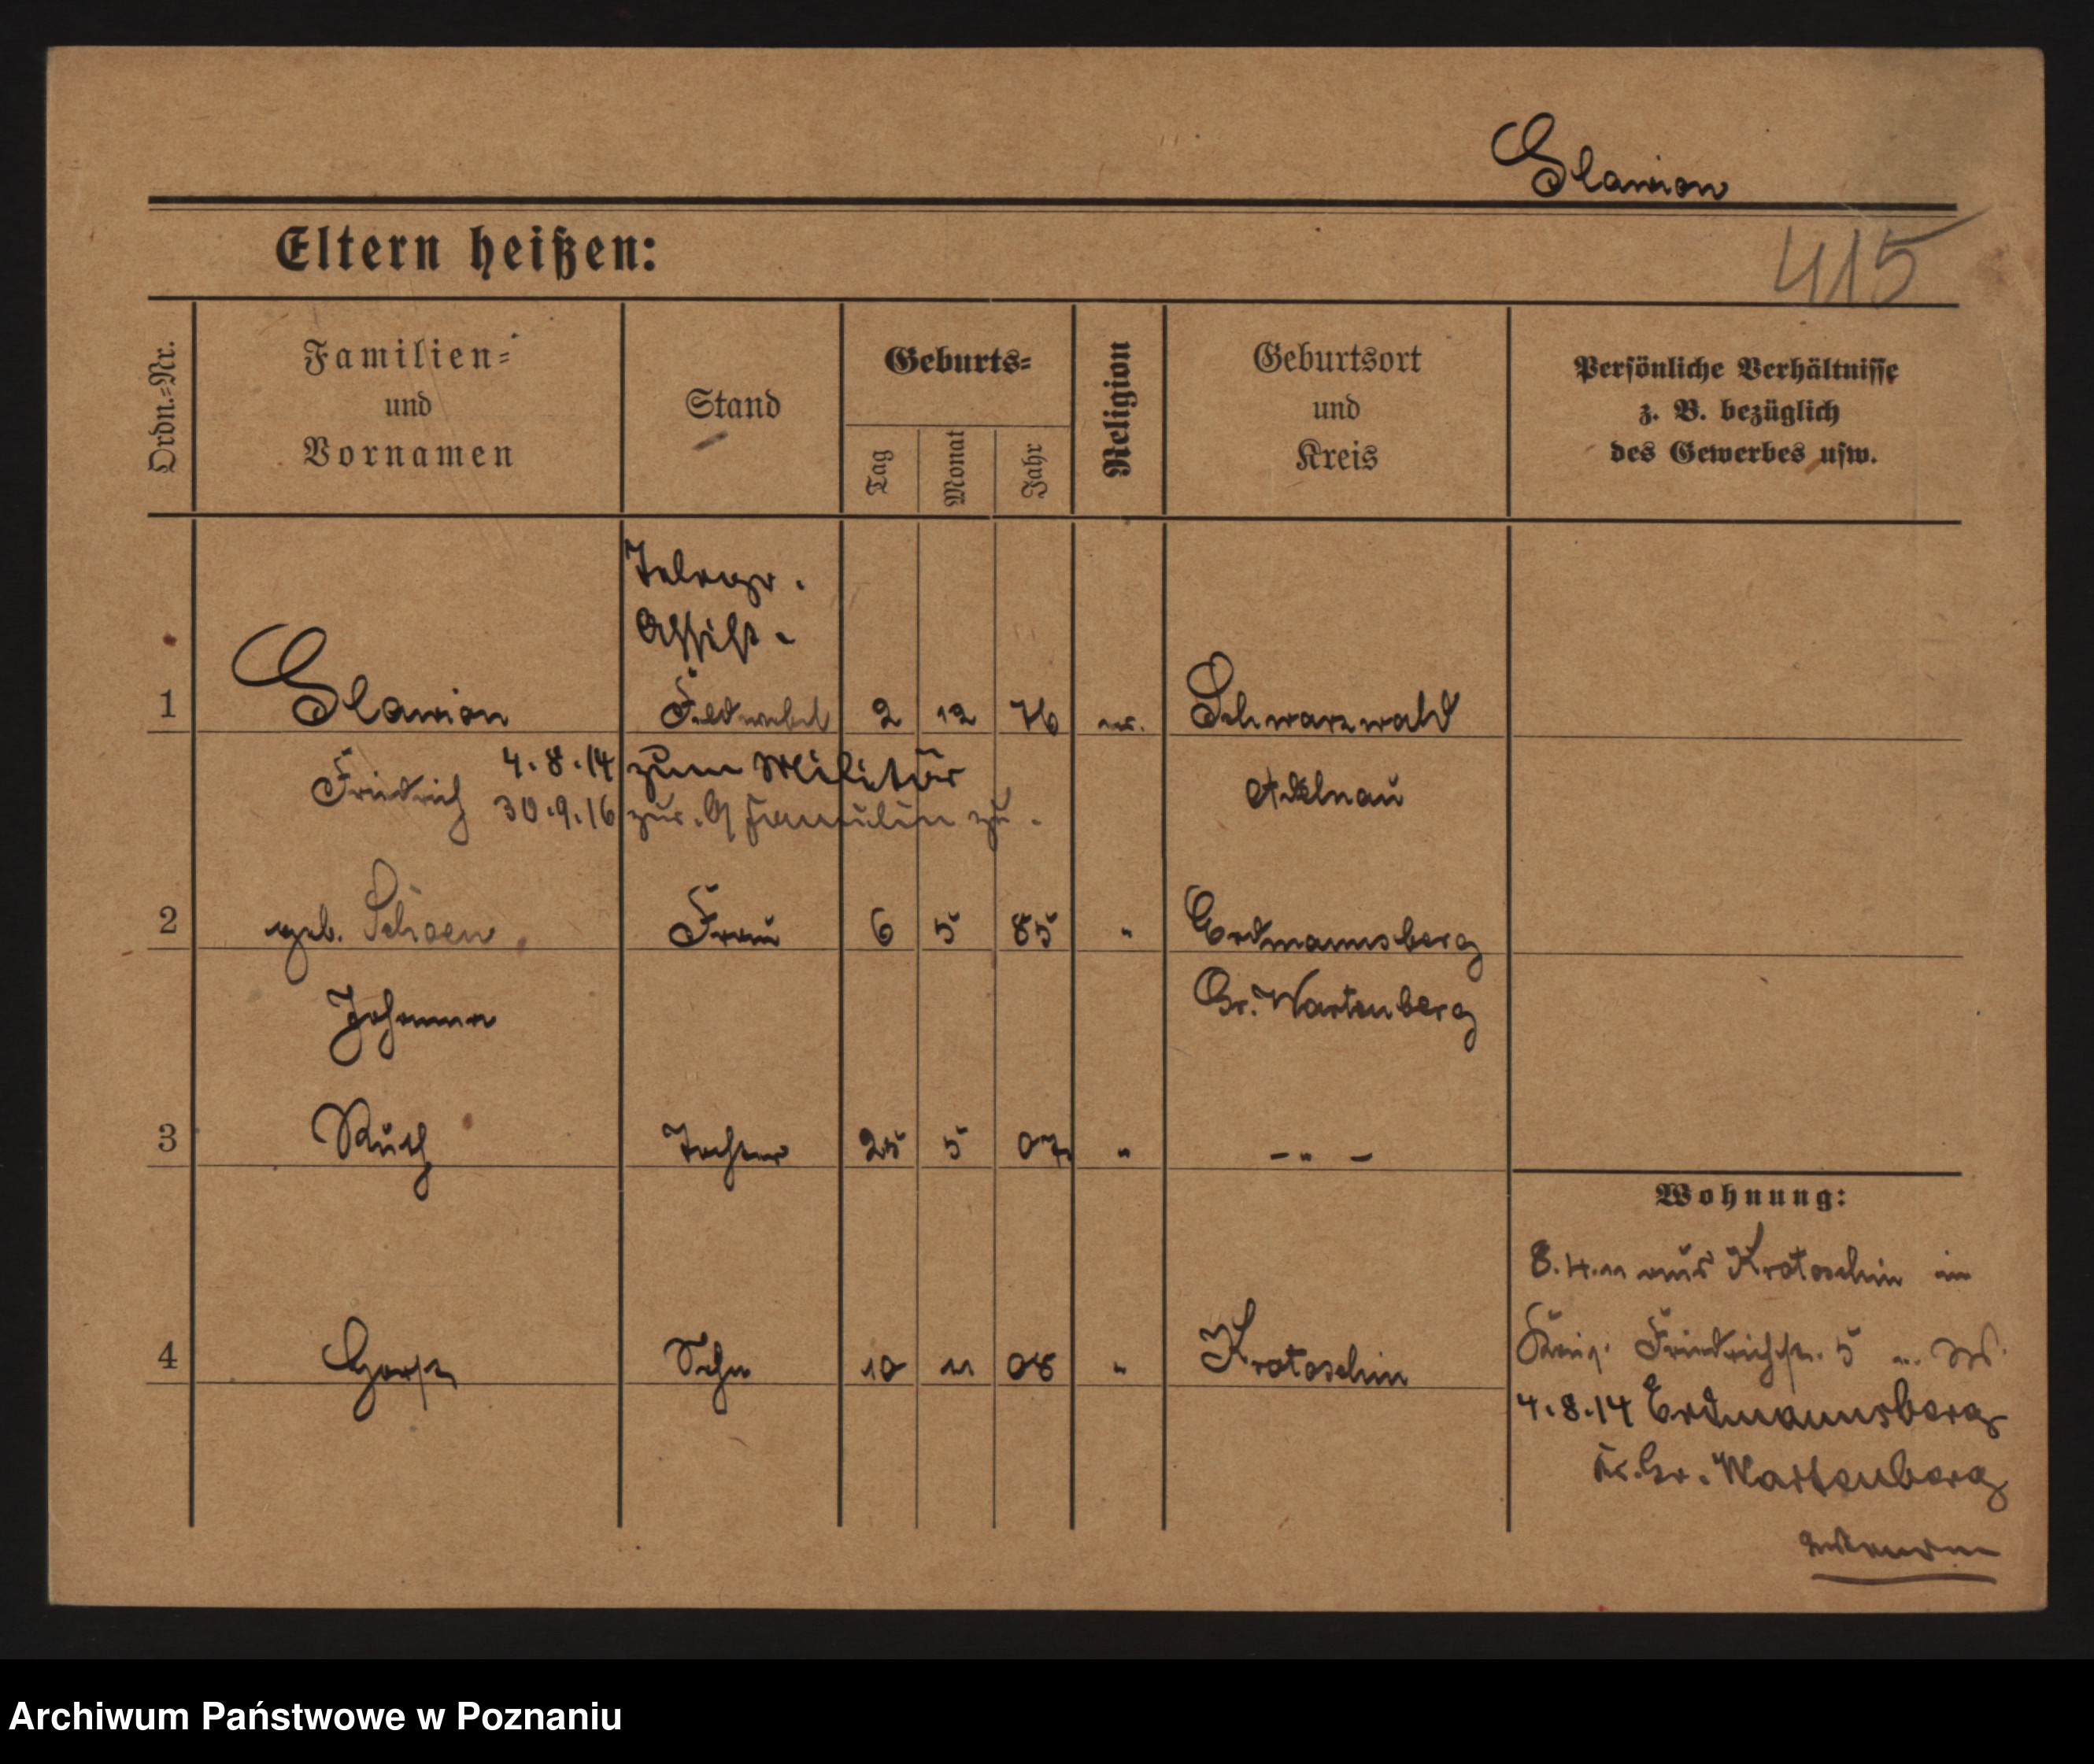 Slawion
415
Eltern heißen:
Ordn.-Nr.
Familien-
und
Vornamen
Stand
Geburts-
Tag
Monat
Jahr
Religion
Geburtsort
und
Kreis
Persönliche Verhältnisse
z. B. bezüglich
des Gewerbes usw.
Telegr.
Assist.
1 Slawion Feldwebel 2 12 76 ev. Schwarzwald
Friedrich 4.8.14 zum Militär Adelnau
30.9.16 zur. Familie
2 geb. Schoen Frau 6 5 85 " Erdmannsberg
Johanna Gr. Wartenberg
3 Ruth Tochter 25 5 07 " - " -
Wohnung:
8.4.11 aus Krotoschin in
4 Horst Sohn 10 11 08 " Krotoschin
Friedrichstr. 5
4.8.14 Erdmannsberg
Kr. Gr. Wartenberg
Archiwum Państwowe w Poznaniu